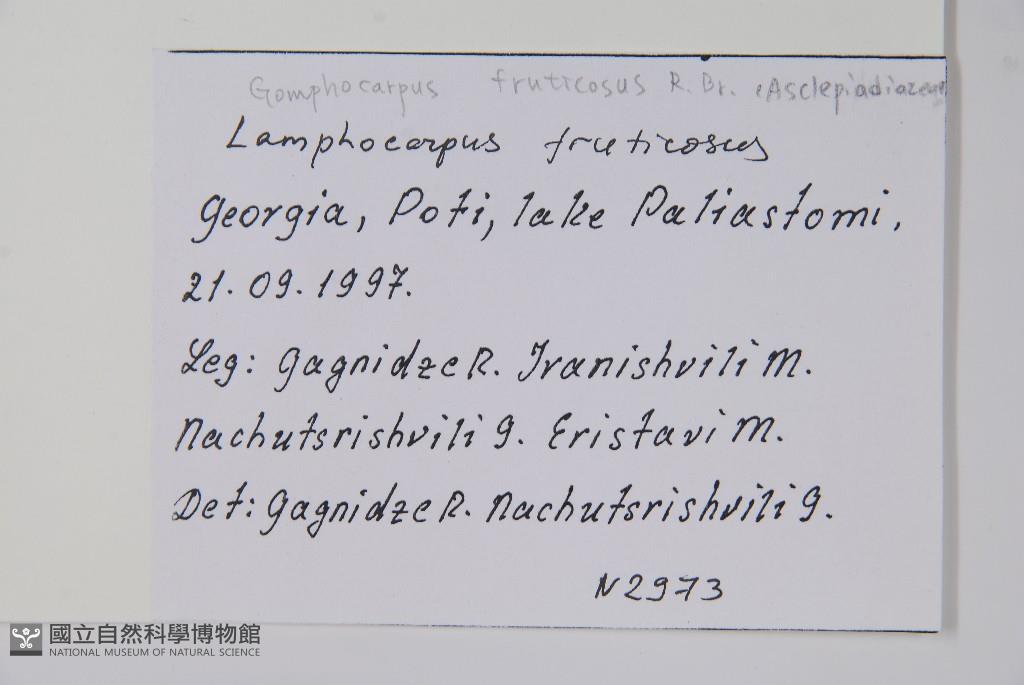 Gomphocarpus fruticosus R. Br. (Asclepiadiazeae
Lamphocarpus fruticosus
Georgia, Poti, lake Paliastomi,
21. 09. 1997.
Leg: Gagnidze R. Ivanishvili M.
Nachutsrishvili G. Eristavi M.
Det: Gagnidze R. Nachutsrishvili G.
N 2973
國立自然科學博物館
NATIONAL MUSEUM OF NATURAL SCIENCE